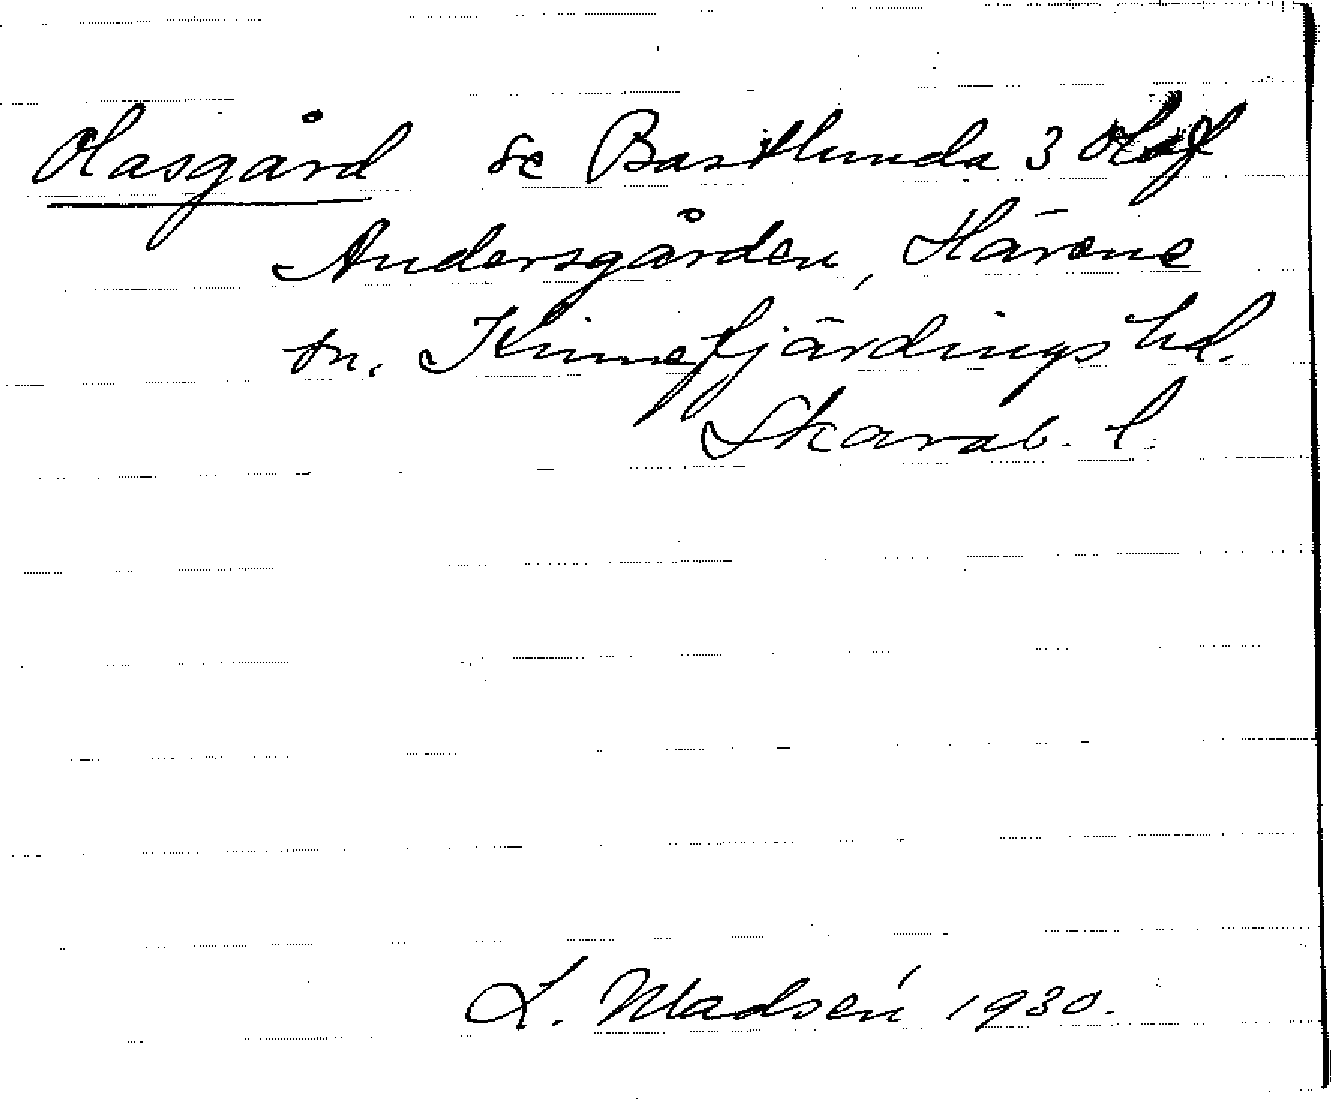 Olasgård se Bastlunda 3
Andersgården, Härene
sn. Kinnefjärdings hd.
Skarab. l.
L. Madsén 1930.